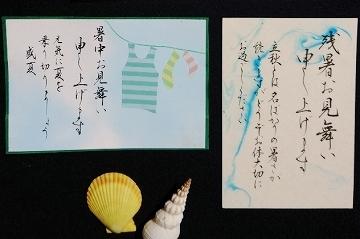 暑中お見舞い
申し上げます
元気に夏を
乗り切りましょう
盛夏
残暑お見舞い
申し上げます
立秋とは名ばかりの暑さが
続きますが、どうぞお体大切に
お過しください